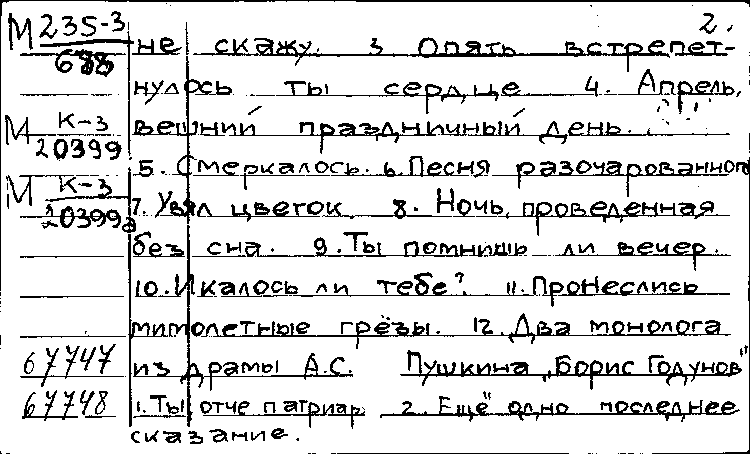 М 235-3 2.
688 не скажу. 3 Опять встрепет-
нулось ты сердце 4. Апрель,
М К-3 вешний праздничный день.
20399 5. Смеркалось. 6. Песня разочарованного
М К-3
20399а 7. Увял цветок 8. Ночь, проведенная
без сна. 9. Ты помнишь ли вечер.
10. Икалось ли тебе? 11. Пронеслись
мимолетные грёзы. 12. Два монолога
67747 из драмы А.С. Пушкина „Борис Годунов"
67748 1. Ты отче патриар 2. Ещё одно последнее
сказание.